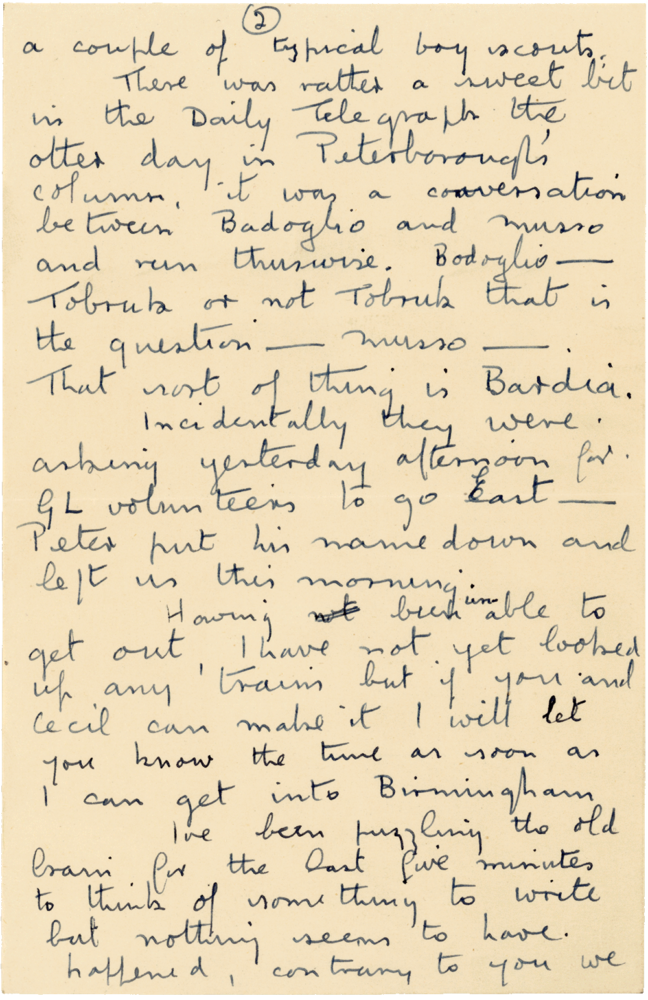 2
a couple of typical boy scouts.
There was rather a sweet bit
in the Daily Telegraph the
other day in Peterborough's
column, it was a conversation
between Badoglio and Musso
and run thuswise. Bodoglio —
Tobruk or not Tobruk that is
the question — Musso — .
That sort of thing is Bardia.
Incidentally they were
asking yesterday afternoon for
GL volunteers to go East —
Peter put his name down and
left us this morning.
Having not been unable to
get out, I have not yet looked
up any trains but if you and
Cecil can make it I will let
you know the time as soon as
I can get into Birmingham
I've been puzzling the old
brain for the last five minutes
to think of something to write
but nothing seems to have.
happened, contrary to you we